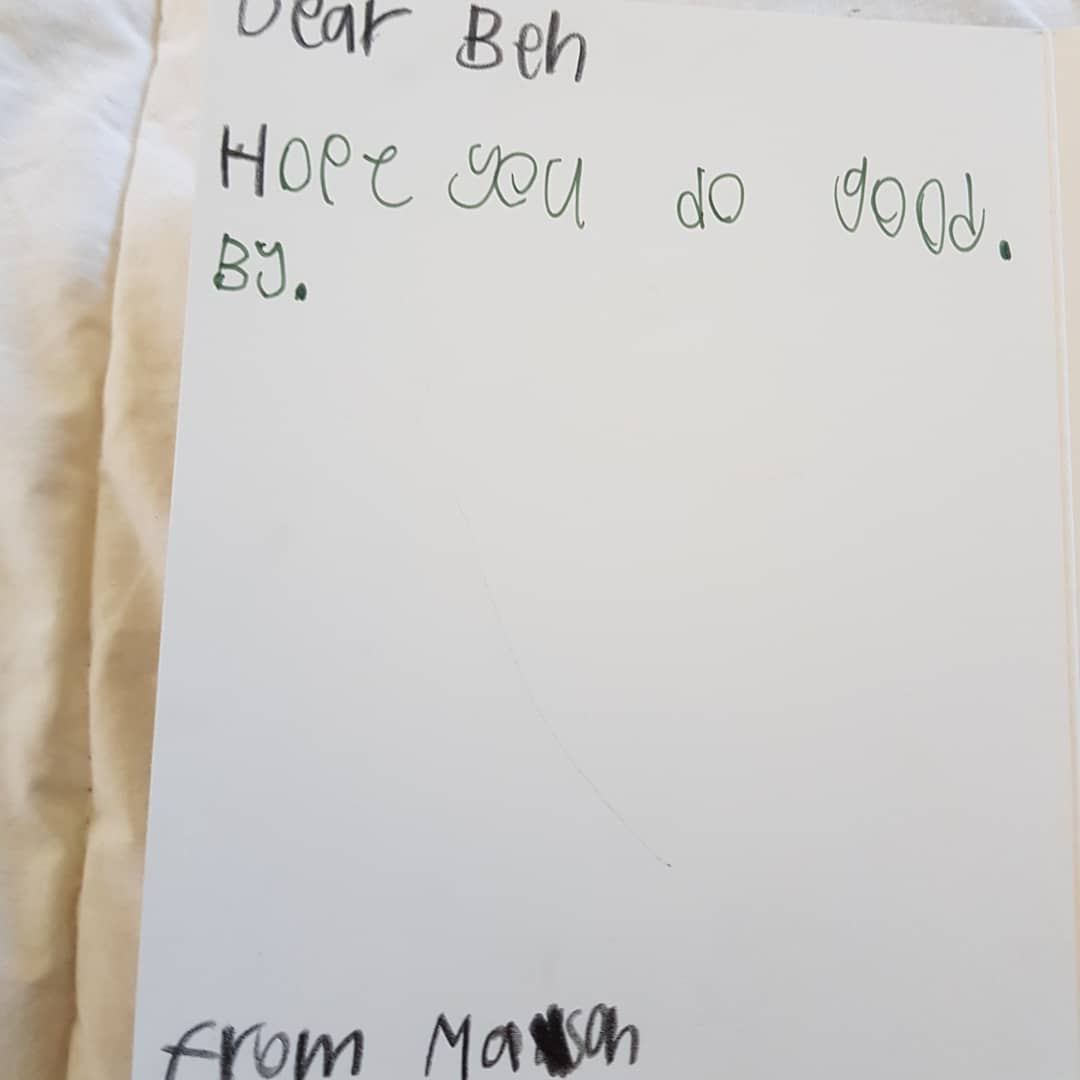 Dear Ben
Hope you do good.
By.
from Mason